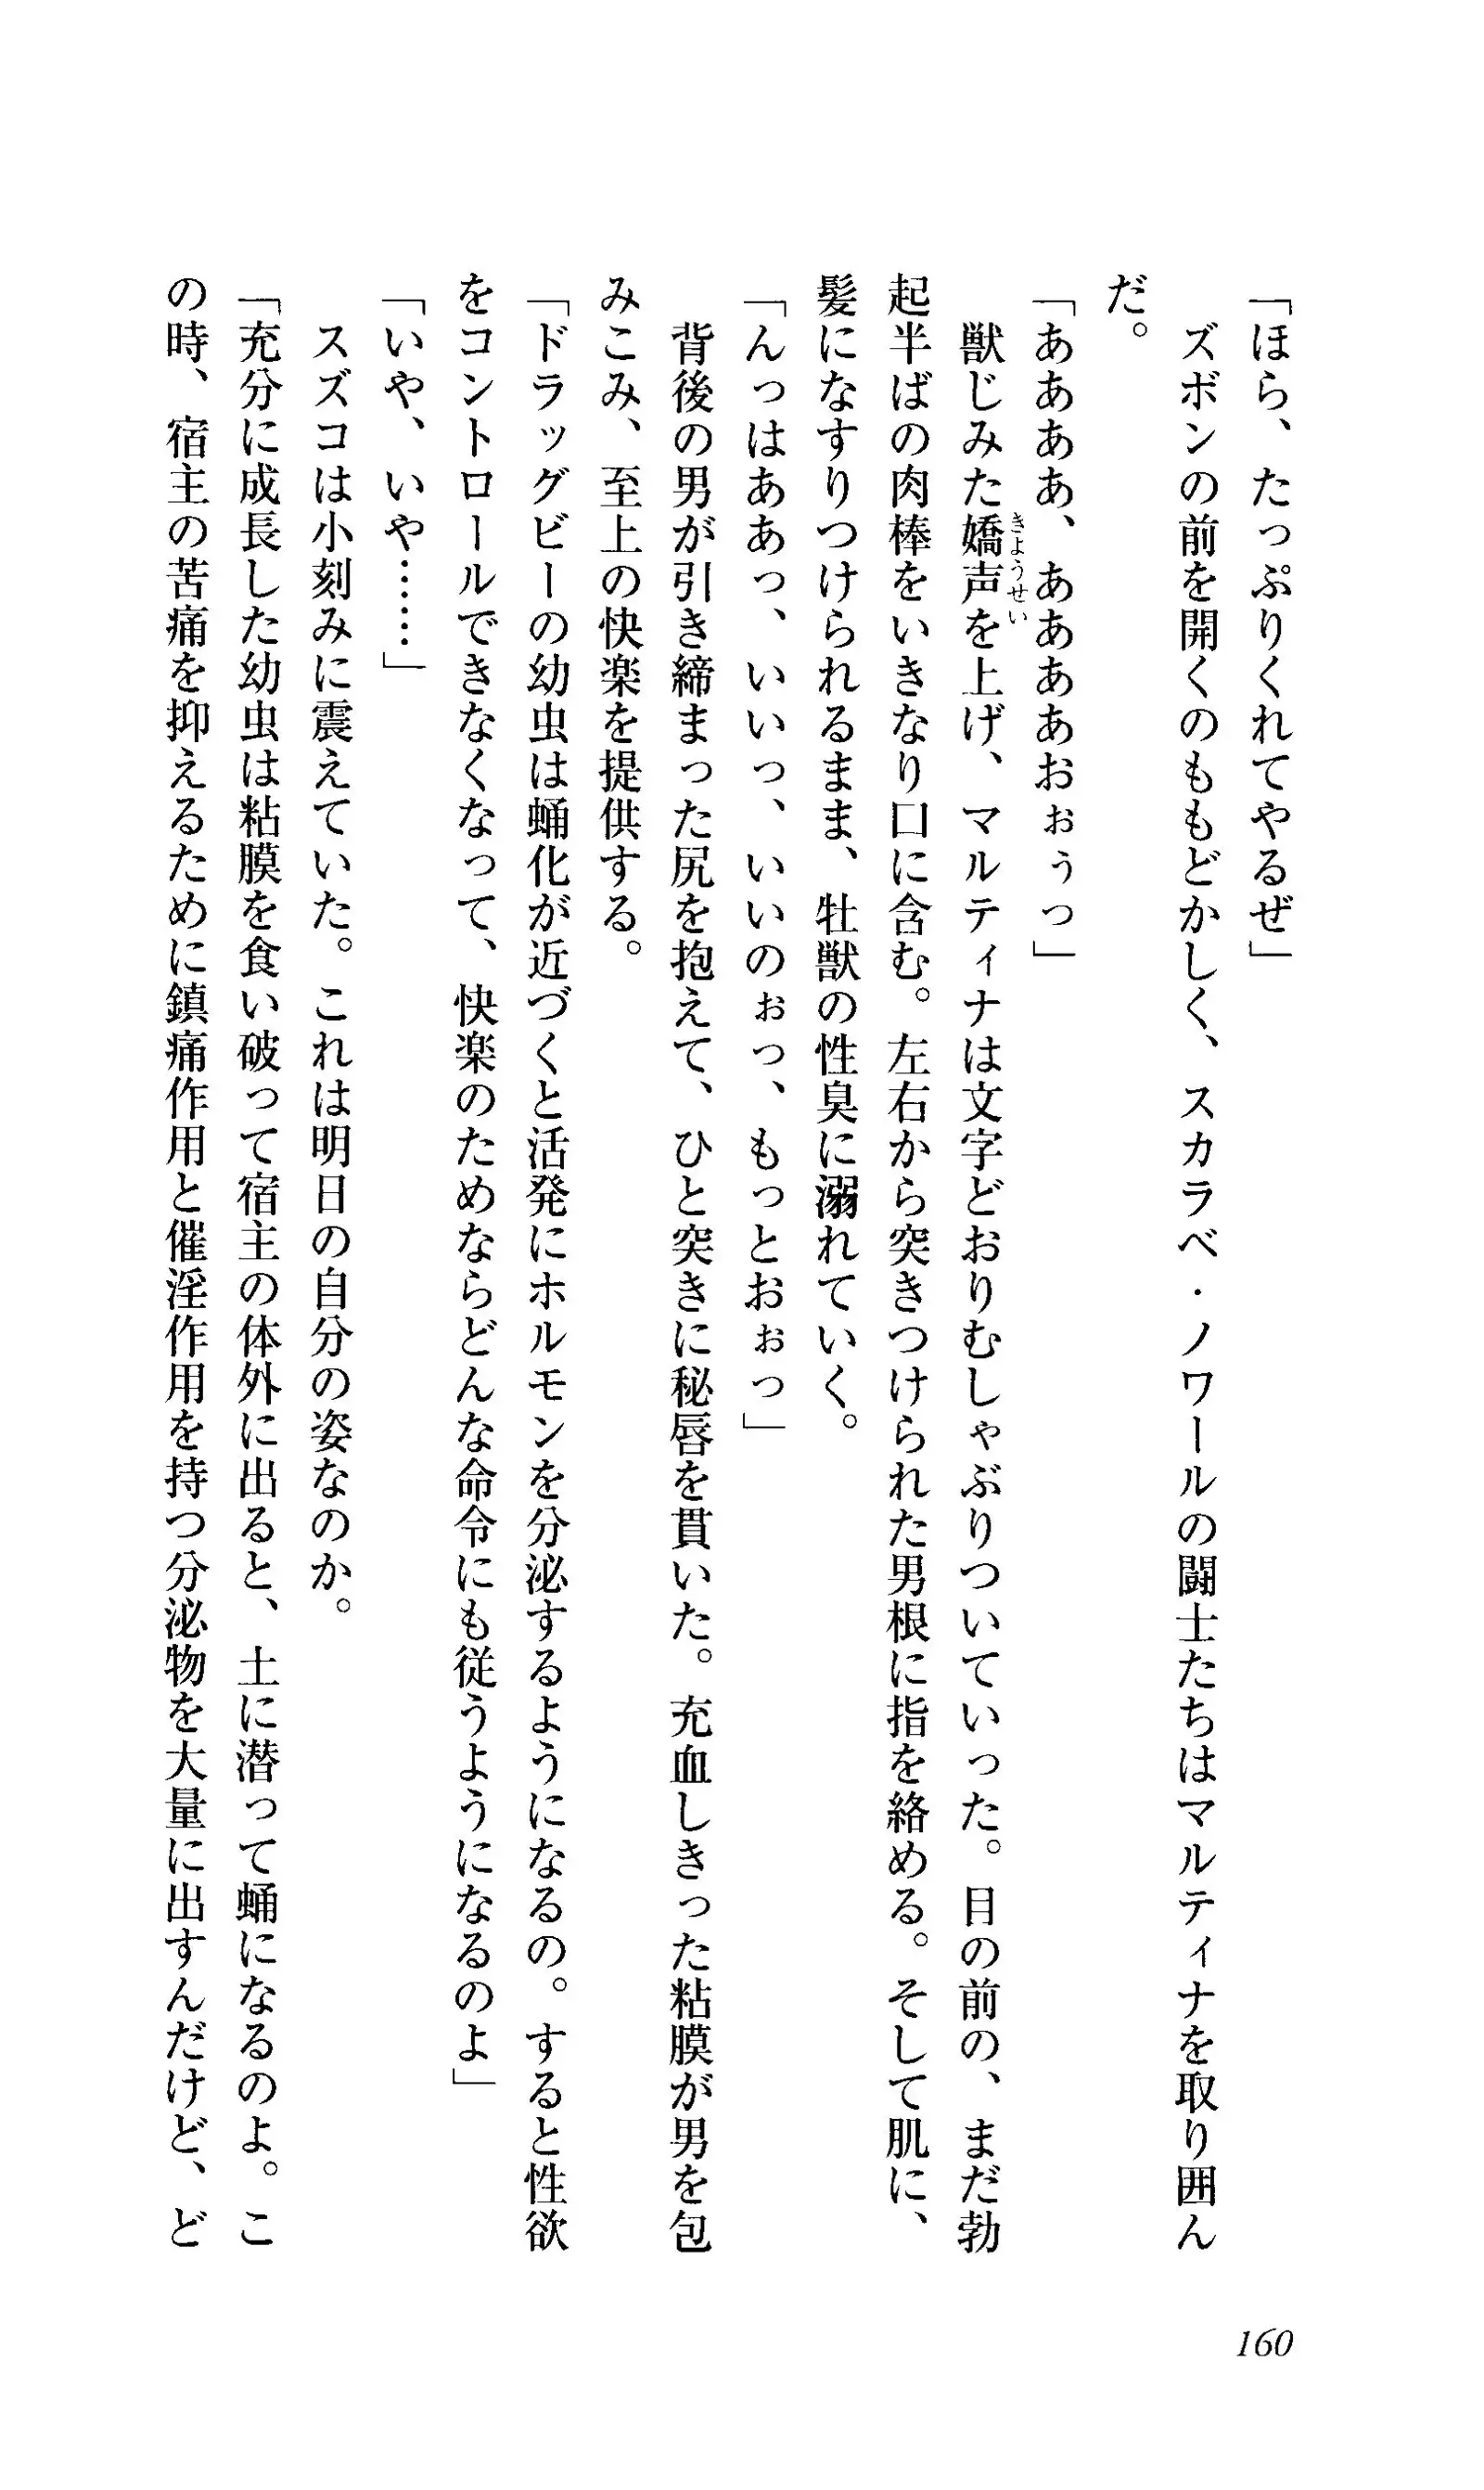 「ほら、たっぷりくれてやるぜ」
ズボンの前を開くのももどかしく、スカラベ・ノワールの闘士たちはマルティナを取り囲ん
だ。
「ああああ、ああああおぉぅっ」
獣じみた嬌声を上げ、マルティナは文字どおりむしゃぶりついていった。目の前の、まだ勃
きょうせい
起半ばの肉棒をいきなり口に含む。左右から突きつけられた男根に指を絡める。そして肌に、
髪になすりつけられるまま、牡獣の性臭に溺れていく。
「んっはああっ、いいっ、いいのぉっ、もっとおぉっ」
背後の男が引き締まった尻を抱えて、ひと突きに秘唇を貫いた。充血しきった粘膜が男を包
みこみ、至上の快楽を提供する。
「ドラッグビーの幼虫は蛹化が近づくと活発にホルモンを分泌するようになるの。すると性欲
をコントロールできなくなって、快楽のためならどんな命令にも従うようになるのよ」
「いや、いや……」
スズコは小刻みに震えていた。これは明日の自分の姿なのか。
「充分に成長した幼虫は粘膜を食い破って宿主の体外に出ると、土に潜って蛹になるのよ。こ
の時、宿主の苦痛を抑えるために鎮痛作用と催淫作用を持つ分泌物を大量に出すんだけど、ど
160